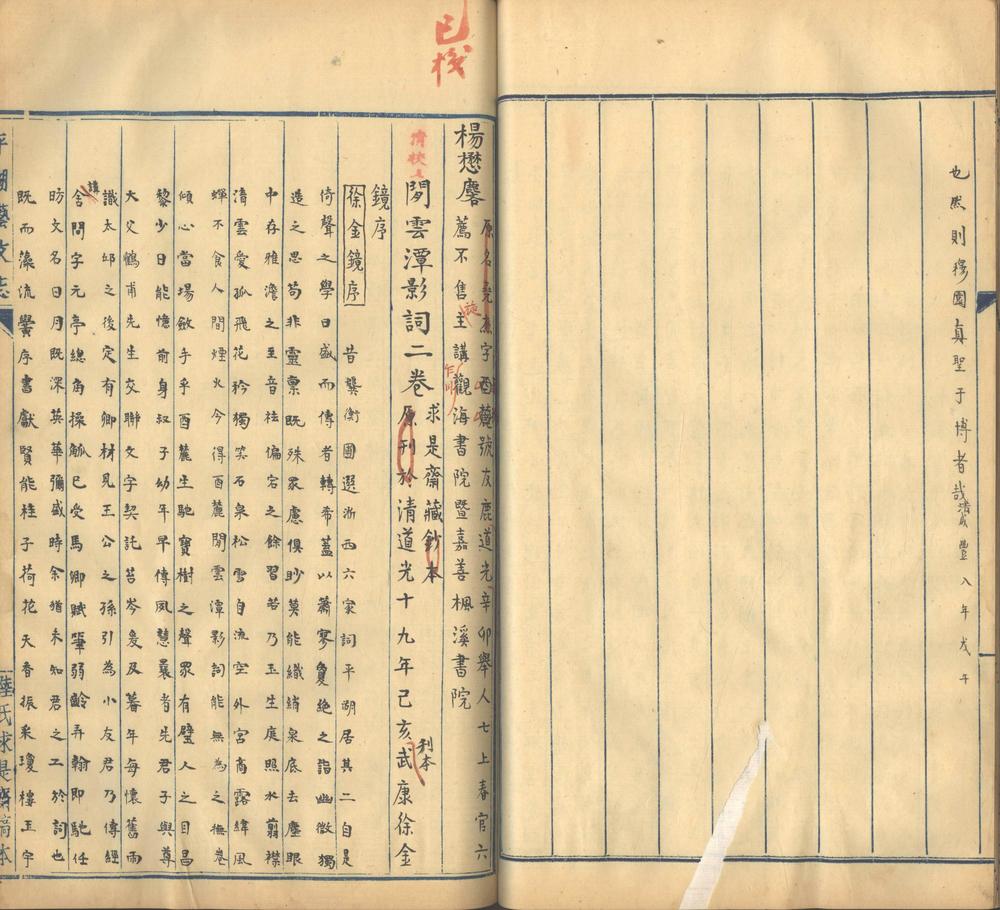 也然則穆園真聖于博者哉清咸豐八年戊午
已校
楊懋麐原名堯杰字酉麓號友鹿道光辛卯舉人七上春官六
薦不售旋主講觀海書院暨嘉善楓溪書院
乍川
清校上
閒雲潭影詞二卷求是齋藏鈔本
刊本
原刊於清道光十九年己亥武康徐金
鏡序
徐金鏡序 昔龔衡圃選浙西六家詞平湖居其二自是
倚聲之學日盛而傳者轉希蓋以蕭寥敻絕之詣幽微獨
造之思苟非靈稟既殊眾慮俱眇莫能織綃泉底去塵眼
中存雅澹之至音祛偏宕之餘習若乃玉生庭照水翦襟
清雲愛孤飛花矜獨笑石泉松雪自流空外宮商露緯風
蟬不食人間煙火今得酉麓閒雲潭影詞能無為之撫卷
傾心當場斂手乎酉麓生馳寶樹之聲眾有璧人之目昌
黎少日能憶前身叔子幼年早傳夙慧曩者先君子與尊
大父鶴甫先生交聯文字契託苔岑爰及暮年每懷舊雨
識太邱之後定有卿材見王公之孫引為小友君乃傳經
講舍問字元亭總角操觚已受馬卿賦筆弱齡弄翰即馳任
昉文名日月既深英華彌盛時余猶未知君之工於詞也
既而藻流黌序書獻賢能桂子荷花天香振采瓊樓玉宇
平湖藝文志
陸氏求是齋稿本